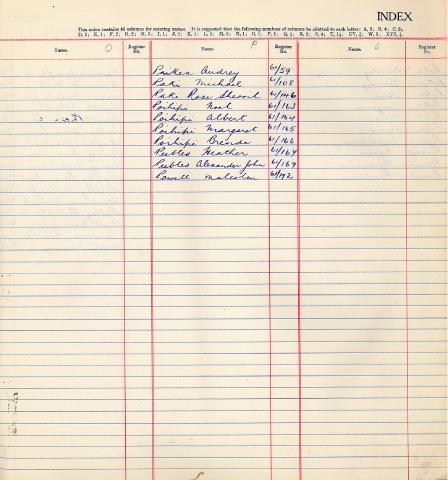 INDEX
This index contains 46 columns for entering names. It is suggested that the following numbers of columns be allotted to each letter: A, 2; B, 4; C, 3;
Name. O Register No. Name. P Register No. Name. Q Register No.
Audrey 61/59
Paki Michael 61/108
Paki Rose 61/146
Poihipi Noel 61/163
Poihipi Albert 61/164
Poihipi Margaret 61/165
Poihipi Brenda 61/166
Peebles Heather 61/167
Peebles Alexander John 61/169
Powell Malcolm 61/192